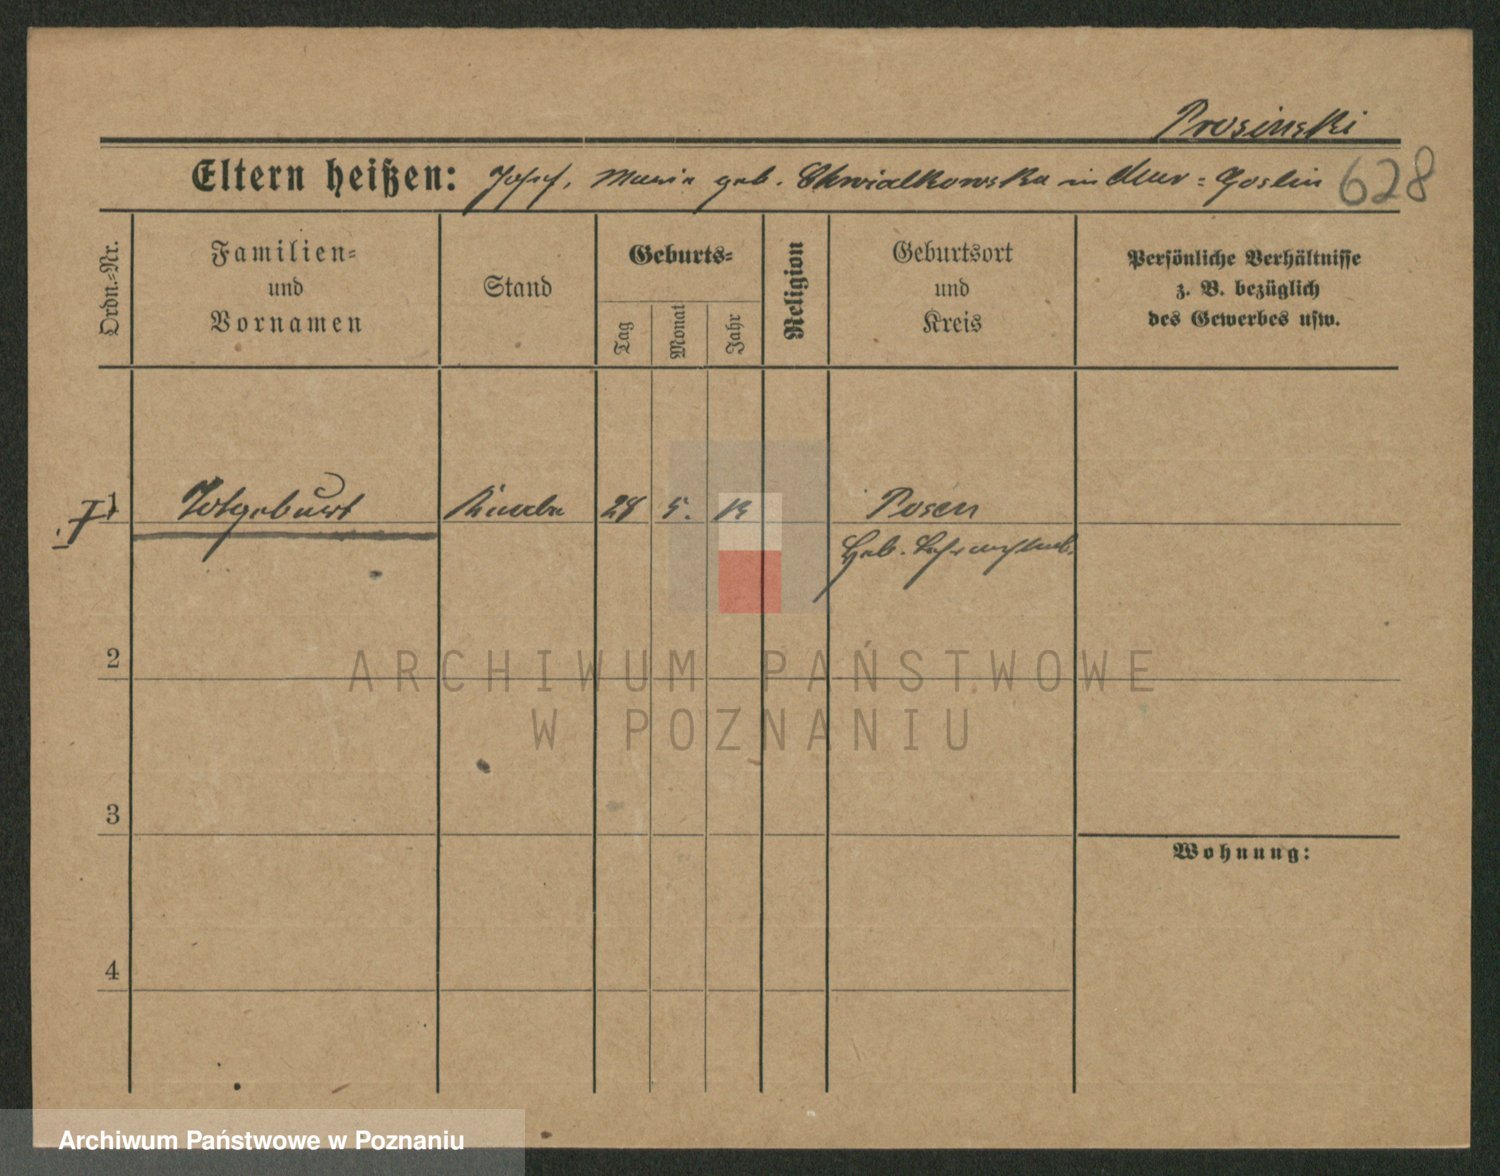 Prosinski
Eltern heißen: Josef, Maria geb. Chwialkowska in Mur=Goslin 628
Ordn.-Nr.
Familien=
und
Vornamen
Stand
Geburts=
Tag
Monat
Jahr
Religion
Geburtsort
und
Kreis
Persönliche Verhältnisse
z. B. bezüglich
des Gewerbes usw.
1 Totgeburt Knabe 28 5. Posen
Heb.
2
ARCHIWUM PAŃSTWOWE
W POZNANIU
3
Wohnung:
4
Archiwum Państwowe w Poznaniu